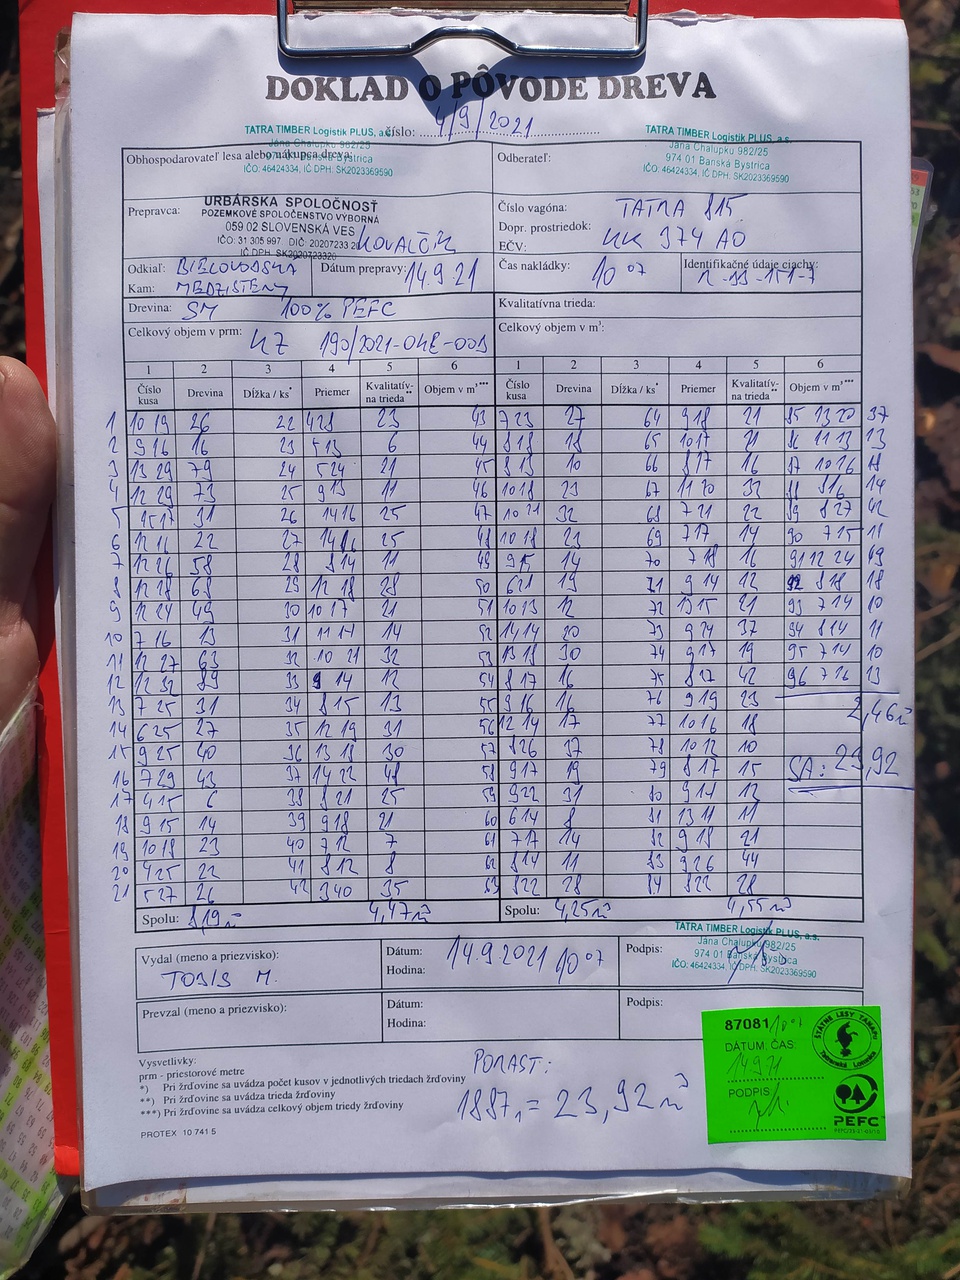 DOKLAD O PÔVODE DREVA
číslo: 4/9/2021
TATRA TIMBER Logistik PLUS, a.s.
Jána Chalupku 982/25
974 01 Banská Bystrica
IČO: 46424334, IČ DPH: SK2023369590
TATRA TIMBER Logistik PLUS, a.s.
Jána Chalupku 982/25
974 01 Banská Bystrica
IČO: 46424334, IČ DPH: SK2023369590
Obhospodarovateľ lesa alebo nákupca dreva:
Odberateľ:
Prepravca:
URBÁRSKA SPOLOČNOSŤ
POZEMKOVÉ SPOLOČENSTVO VÝBORNÁ
059 02 SLOVENSKÁ VES
IČO: 31 305 997 DIČ: 20207233 20
IČ DPH: SK2020723320
KOVALČÍK
Číslo vagóna: TATRA 815
Dopr. prostriedok:
EČV: KK 374 AO
Odkiaľ: BIELOVODSKÁ
Kam: MEDZISTENY
Dátum prepravy: 14.9.21
Čas nakládky: 10 07
Identifikačné údaje ciachy:
Drevina: SM 100% PEFC
Kvalitatívna trieda:
Celkový objem v prm: KZ 190/2021-04E-003
Celkový objem v m³:
1 2 3 4 5 6 1 2 3 4 5 6
Číslo kusa Drevina Dĺžka / ks* Priemer Kvalitatív- na trieda** Objem v m³*** Číslo kusa Drevina Dĺžka / ks* Priemer Kvalitatív- na trieda** Objem v m³***
1 10 19 26 22 4 28 23 43 7 23 27 64 9 18 21 85 13 20 37
2 9 16 16 23 5 13 6 44 8 18 18 65 10 17 21 86 11 13 13
3 13 29 79 24 5 24 21 45 8 13 10 66 8 17 16 87 10 16 18
4 12 29 73 25 9 13 11 46 10 18 23 67 11 20 32 88 8 16 14
5 15 17 31 26 14 16 25 47 10 21 32 68 7 21 22 89 8 27 42
6 12 16 22 27 14 16 25 48 10 18 23 69 7 17 14 90 7 15 11
7 12 26 58 28 8 14 11 49 9 15 14 70 7 18 16 91 12 24 49
8 12 28 68 29 12 18 28 50 6 21 19 71 9 14 12 92 8 18 18
9 12 24 49 30 10 17 21 51 10 13 12 72 13 15 21 93 7 14 10
10 7 16 13 31 11 14 14 52 14 14 20 73 9 24 37 94 8 14 11
11 12 27 63 32 10 21 32 53 13 18 30 74 9 17 19 95 7 14 10
12 12 32 89 33 9 14 12 54 8 17 16 75 8 27 42 96 7 16 13
13 7 25 31 34 8 15 13 55 9 16 16 76 9 19 23
2,46 m³
14 6 25 27 35 12 19 31 56 12 14 17 77 10 16 18
15 9 25 40 36 13 18 30 57 8 26 37 78 10 12 10
16 7 29 43 37 14 22 48 58 9 17 19 79 8 17 15
SA: 23,92
17 4 15 6 38 8 21 25 59 9 22 31 80 9 14 12
18 9 15 14 39 9 18 21 60 6 14 8 81 13 11 11
19 10 18 23 40 7 12 7 61 7 17 14 82 9 18 21
20 4 25 22 41 8 12 8 62 8 14 11 83 9 26 44
21 5 27 26 42 3 40 35 63 8 22 28 84 8 22 28
Spolu: 8,19 m³ 4,47 m³ Spolu: 4,25 m³ 4,55 m³
Vydal (meno a priezvisko):
TOBIS M.
Dátum: 14.9.2021 10 07
Hodina:
Podpis:
TATRA TIMBER Logistik PLUS, a.s.
Jána Chalupku 982/25
974 01 Banská Bystrica
IČO: 46424334, IČ DPH: SK2023369590
Prevzal (meno a priezvisko):
Dátum:
Hodina:
Podpis:
Vysvetlivky:
prm - priestorové metre
*) Pri žrďovine sa uvádza počet kusov v jednotlivých triedach žrďoviny
**) Pri žrďovine sa uvádza trieda žrďoviny
***) Pri žrďovine sa uvádza celkový objem triedy žrďoviny
PROTEX 10 741 5
PORAST:
= 23,92 m³
87081 10 07
DÁTUM: ČAS:
14 9 21
PODPIS
ŠTÁTNE LESY TANAPU
Tatranská Lomnica
PEFC